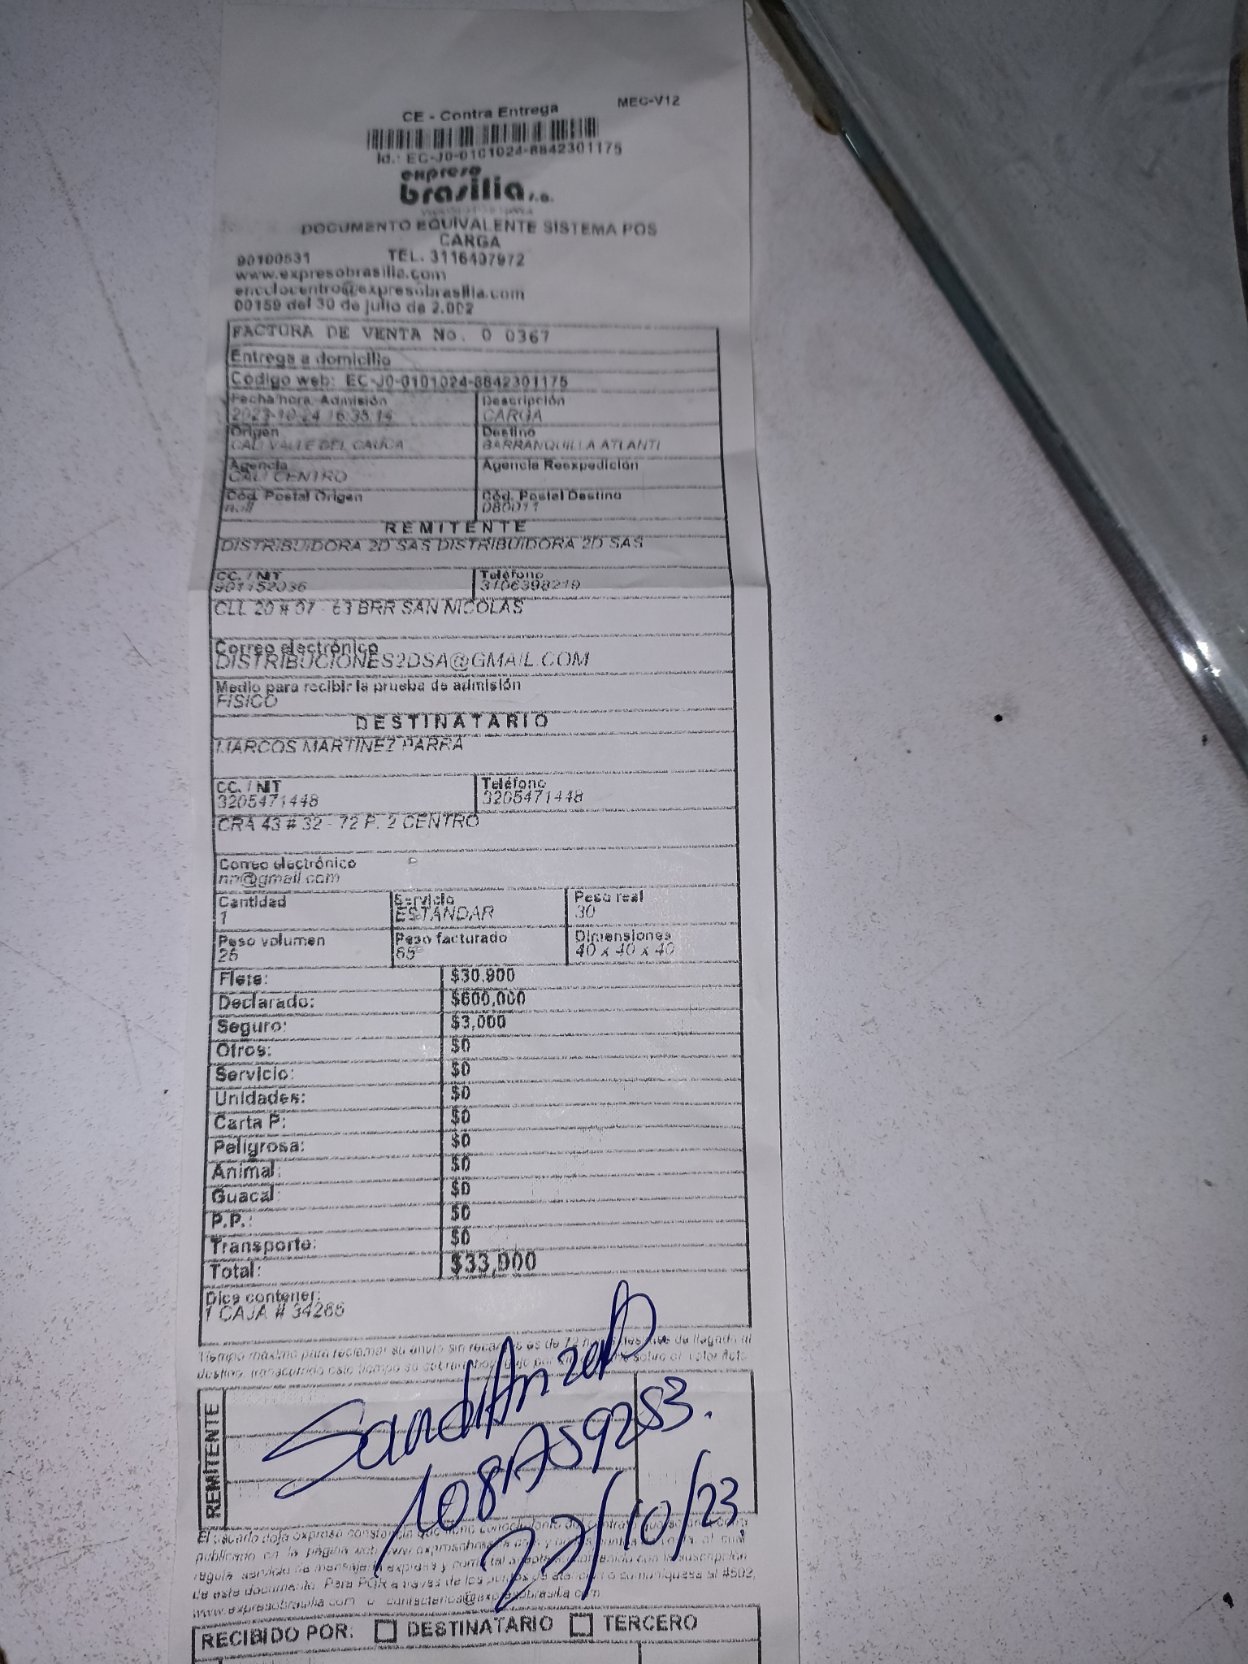 CE - Contra Entrega MEC-V12
Id.: EC-J0-0101024-8842301175
expreso
brasilia s.a.
DOCUMENTO EQUIVALENTE SISTEMA POS
CARGA
90100531 TEL. 3116407972
www.expresobrasilia.com
encclocentro@expresobrasilia.com
00159 del 30 de julio de 2.002
FACTURA DE VENTA No. 0 0367
Entrega a domicilio
Código web: EC-J0-0101024-8842301175
Fecha/hora Admisión Descripción
2023-10-24 16:35:14 CARGA
Origen Destino
CALI VALLE DEL CAUCA BARRANQUILLA ATLANTI
Agencia Agencia Reexpedición
CALI CENTRO
Cód. Postal Origen Cód. Postal Destino
null 080011
REMITENTE
DISTRIBUIDORA 2D SAS DISTRIBUIDORA 2D SAS
CC. / NIT Teléfono
901152036 3106398219
CLL 20 # 07 - 63 BRR SAN NICOLAS
Correo electrónico
DISTRIBUCIONES2DSA@GMAIL.COM
Medio para recibir la prueba de admisión
FISICO
DESTINATARIO
MARCOS MARTINEZ PARRA
CC. / NIT Teléfono
3205471448 3205471448
CRA 43 # 32 - 72 P. 2 CENTRO
Correo electrónico
nn@gmail.com
Cantidad Servicio Peso real
1 ESTANDAR 30
Peso volumen Peso facturado Dimensiones
26 65 40 x 40 x 40
Flete: $30.900
Declarado: $600,000
Seguro: $3,000
Otros: $0
Servicio: $0
Unidades: $0
Carta P: $0
Peligrosa: $0
Animal: $0
Guacal: $0
P.P.: $0
Transporte: $0
Total: $33,900
Dice contener:
1 CAJA # 34266
Tiempo máximo para reclamar su envío sin recargos es de 72 de llegado al
destino, transcurrido este tiempo se cobrará sobre el valor flete
REMITENTE
22/10/23
El usuario deja expresa constancia que tuvo conocimiento del contrato
publicado en la página web
regula servicio de mensajería expresa y
de este documento. Para PQR a través de los puntos de atención o comuníquese al #502,
www.expresobrasilia.com o
RECIBIDO POR: DESTINATARIO TERCERO